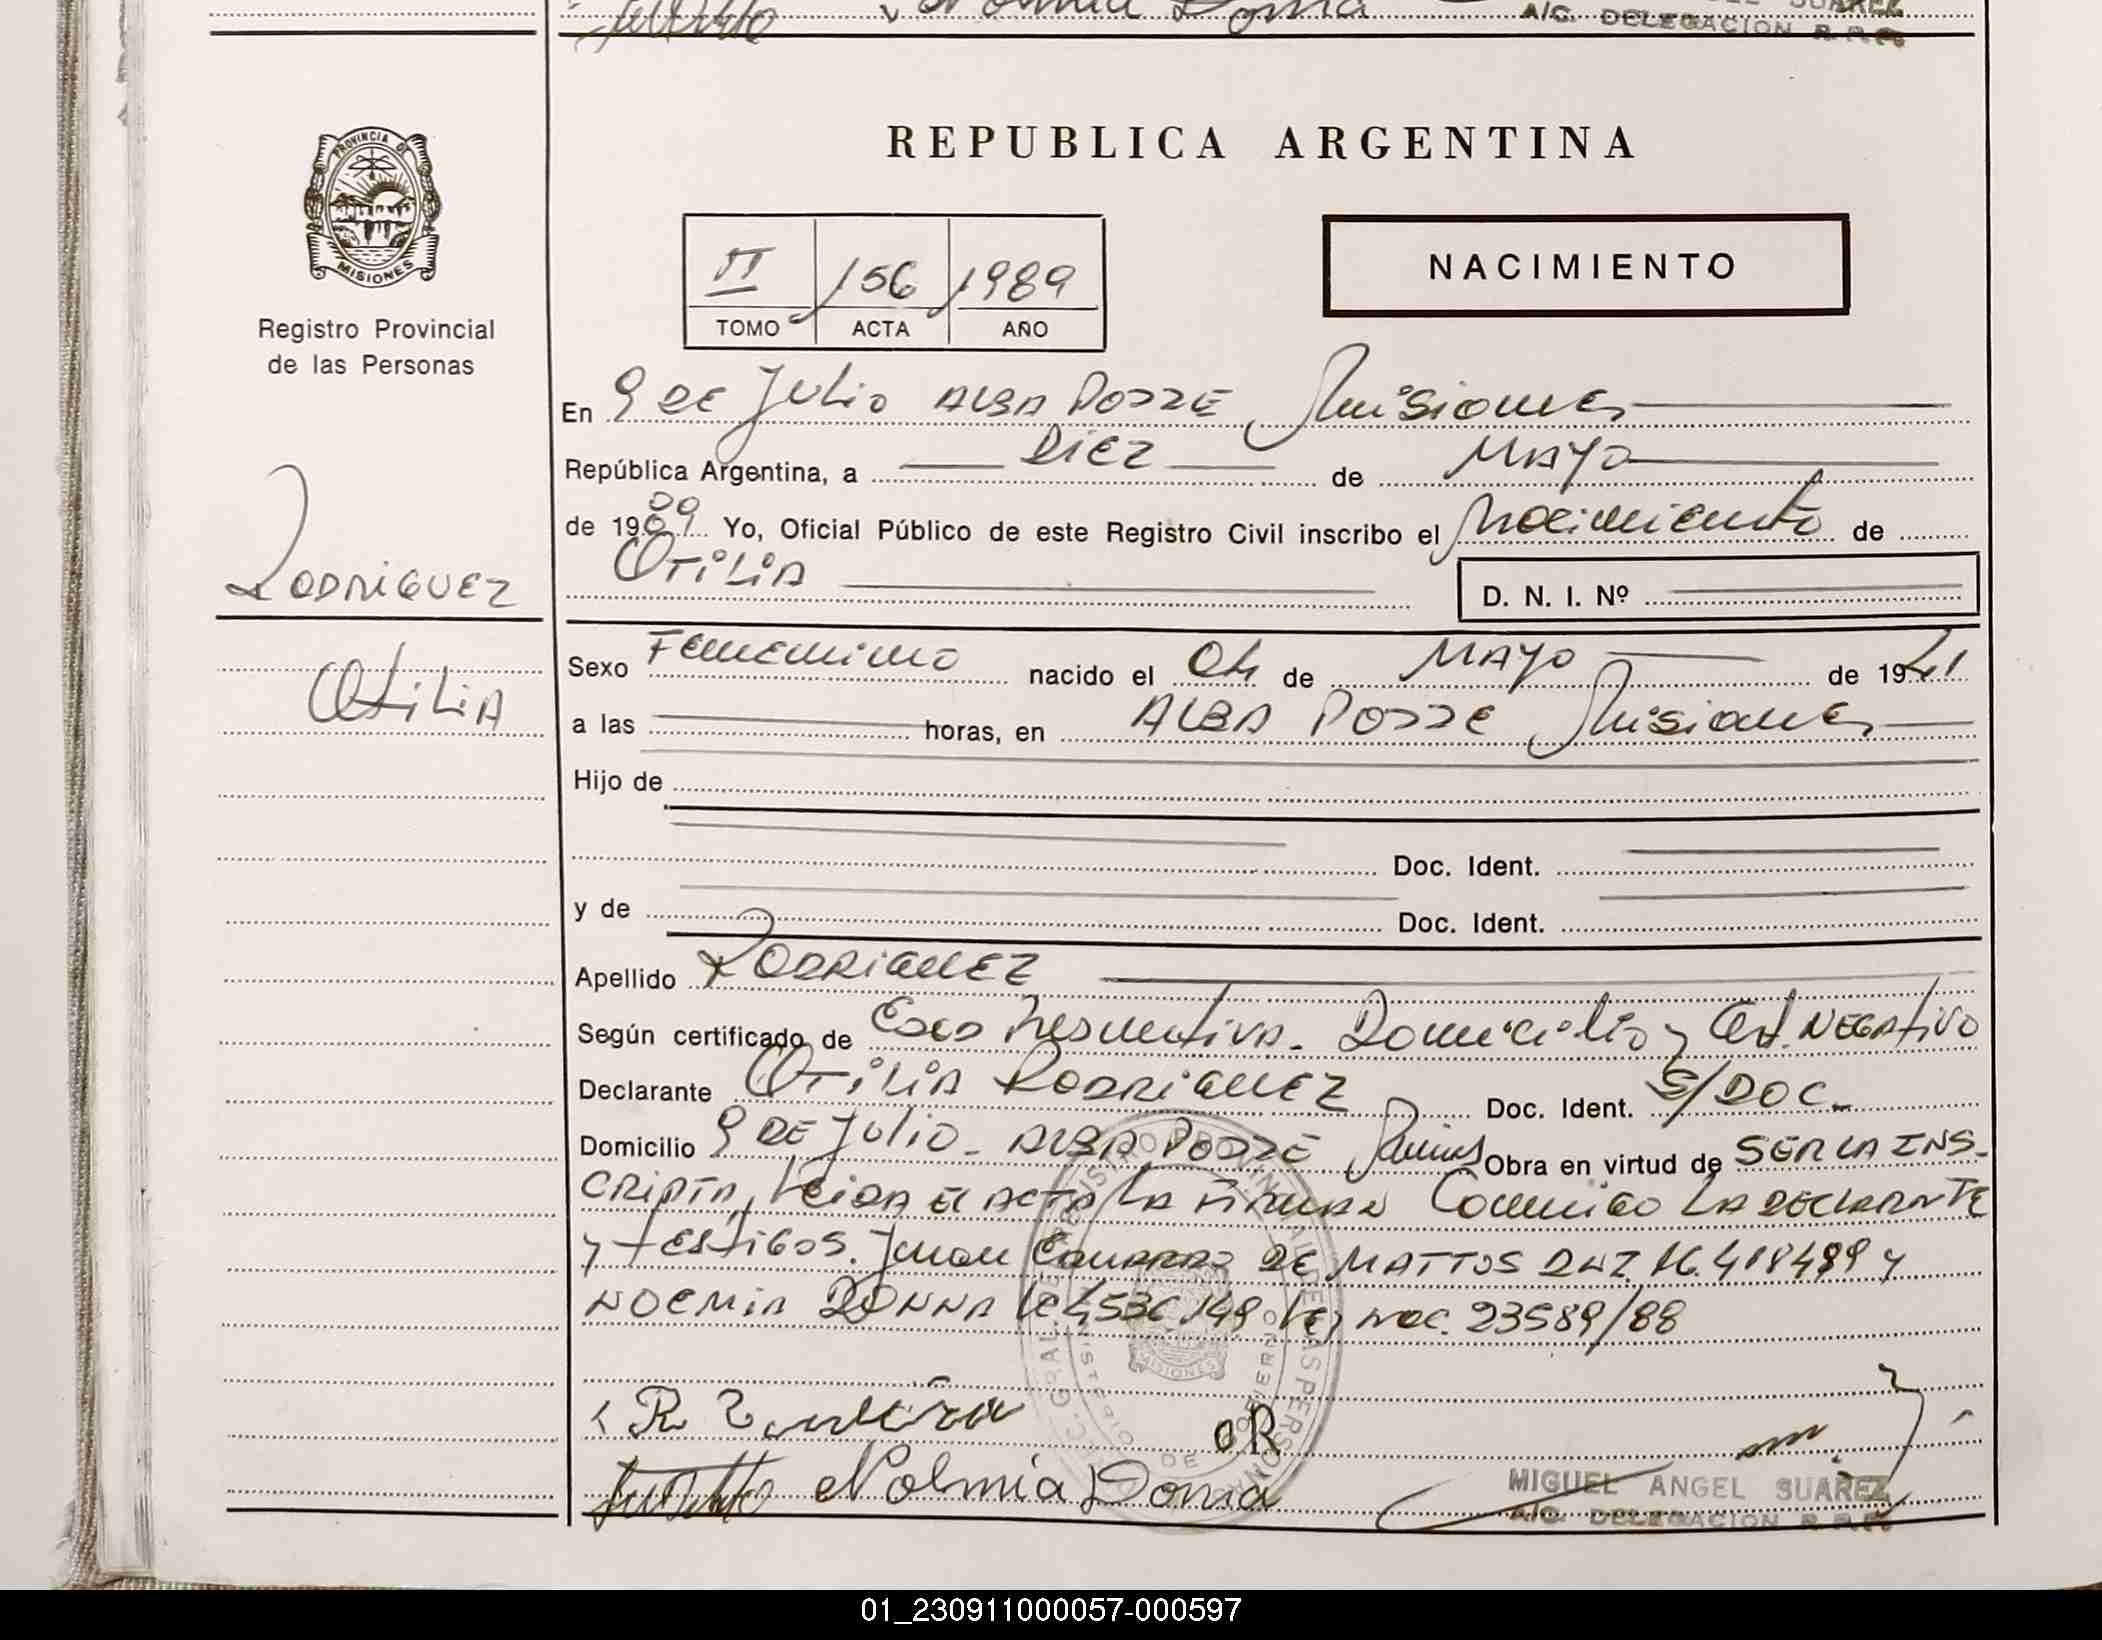 Noemia Donna
A/C. DELEGACION R.P.P.
PROVINCIA DE
MISIONES
Registro Provincial
de las Personas
REPUBLICA ARGENTINA
II 156 1989
TOMO ACTA AÑO
NACIMIENTO
En 9 DE Julio ALBA POSSE Misiones
República Argentina, a DIEZ de MAYO
de 1989 Yo, Oficial Público de este Registro Civil inscribo el Nacimiento de
OTILIA
D. N. I. Nº
RODRIGUEZ
Otilia
Sexo Femenino nacido el 04 de MAYO de 1941
a las horas, en ALBA POSSE Misiones
Hijo de
Doc. Ident.
y de Doc. Ident.
Apellido RODRIGUEZ
Según certificado de Edad Presuntiva. Domicilio y Cert. NEGATIVO
Declarante OTILIA RODRIGUEZ Doc. Ident. S/DOC.
Domicilio 9 DE Julio - ALBA POSSE Obra en virtud de SER LA INS-
CRIPTA, Leida El ACTA LA FIRMAN Conmigo LA DECLARANTE
y testigos. Juan Eduardo DE MATTOS DNI 16.418499 y
NOEMIA DONNA LC 4536149 Ley NAC. 23589/88
OR
Nolmia Donna
MIGUEL ANGEL SUAREZ
A/C. DELEGACION R.P.P.
01_230911000057-000597